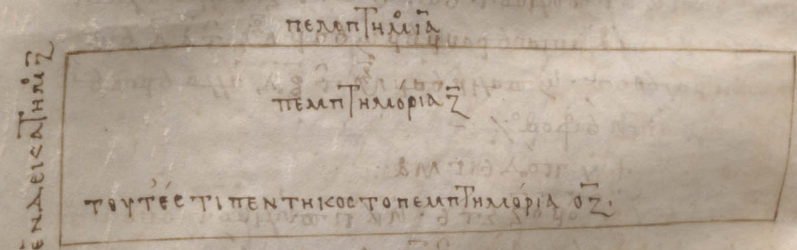 πεμπτημο ια̅
ενδεκατημο ζ̅
πεμπτημόρια ζ̅
τουτέστι πεντηκοστοπεμπτημόρια οζ̅.